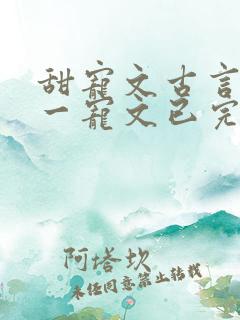 甜寵文古言
一寵文已完
阿塔坎
未经同意禁止转载